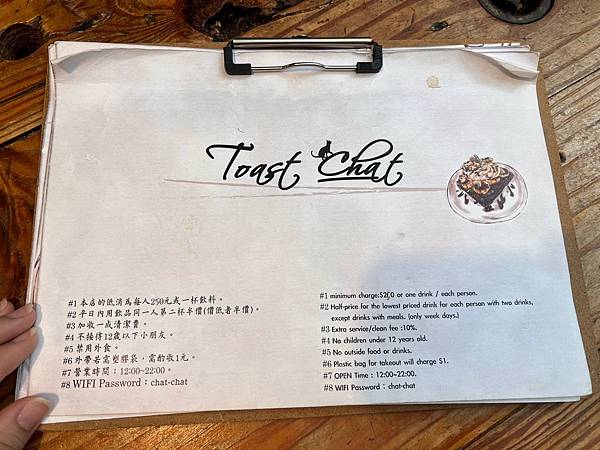 Toast Chat
#1 本店的低消為每人250元或一杯飲料。
#2 平日內用飲品同一人第二杯半價(價低者半價)。
#3 加收一成清潔費。
#4 不接待12歲以下小朋友。
#5 禁用外食。
#6 外帶若需塑膠袋，需酌收1元。
#7 營業時間：12:00~22:00。
#8 WIFI Password：chat-chat
#1 minimum charge: or one drink / each person.
#2 Half-price for the lowest priced drink for each person with two drinks,
except drinks with meals. (only week days.)
#3 Extra service/clean fee :10%.
#4 No children under 12 years old.
#5 No outside food or drinks.
#6 Plastic bag for takeout will charge $1.
#7 OPEN Time : 12:00~22:00.
#8 WIFI Password : chat-chat